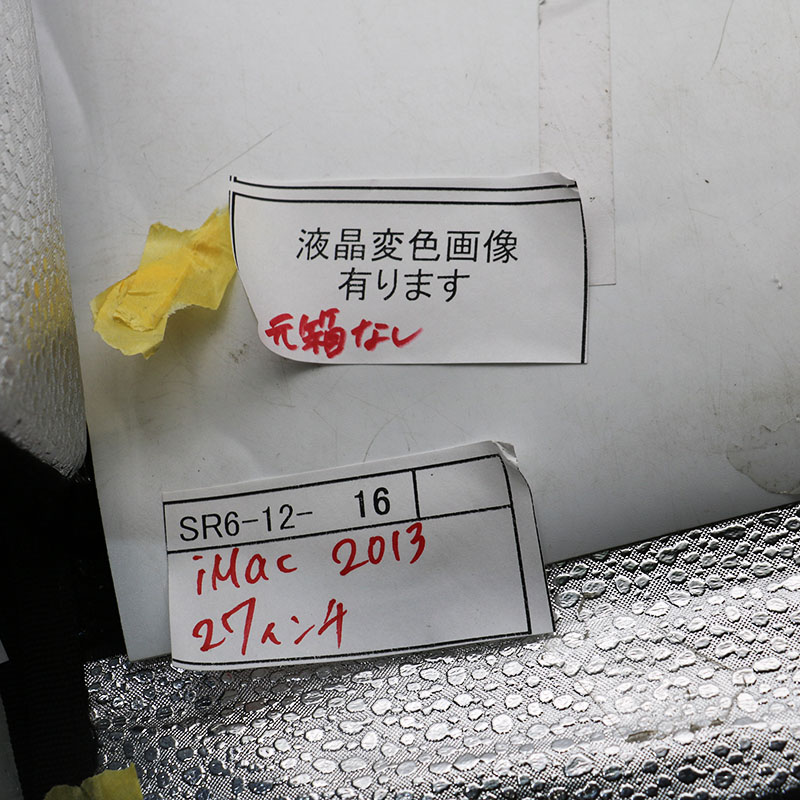 液晶変色画像
有ります
元箱なし
SR6-12- 16
iMac 2013
27インチ